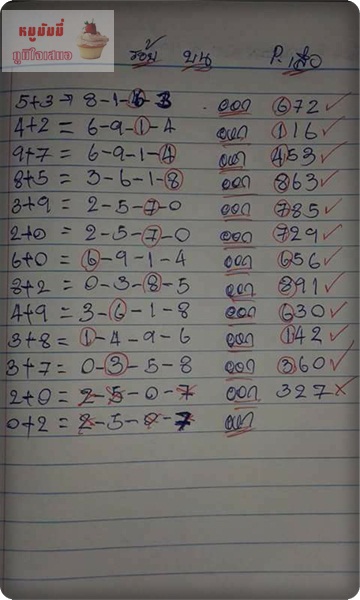 หมูมัมมี่
ภูมิใจเสนอ
บน
5+3 = 8-1-6-3 ออก 672 ✓
4+2 = 6-9-1-4 ออก 116 ✓
9+7 = 6-9-1-4 ออก 453 ✓
8+5 = 3-6-1-8 ออก 863 ✓
3+9 = 2-5-7-0 ออก 785 ✓
2+0 = 2-5-7-0 ออก 729 ✓
6+0 = 6-9-1-4 ออก 656 ✓
8+2 = 0-3-8-5 ออก 891 ✓
4+9 = 3-6-1-8 ออก 630 ✓
3+8 = 1-4-9-6 ออก 142 ✓
3+7 = 0-3-5-8 ออก 360 ✓
2+0 = 2-5-0-7 ออก 327 ✗
0+2 = 2-5-0-7 ออก